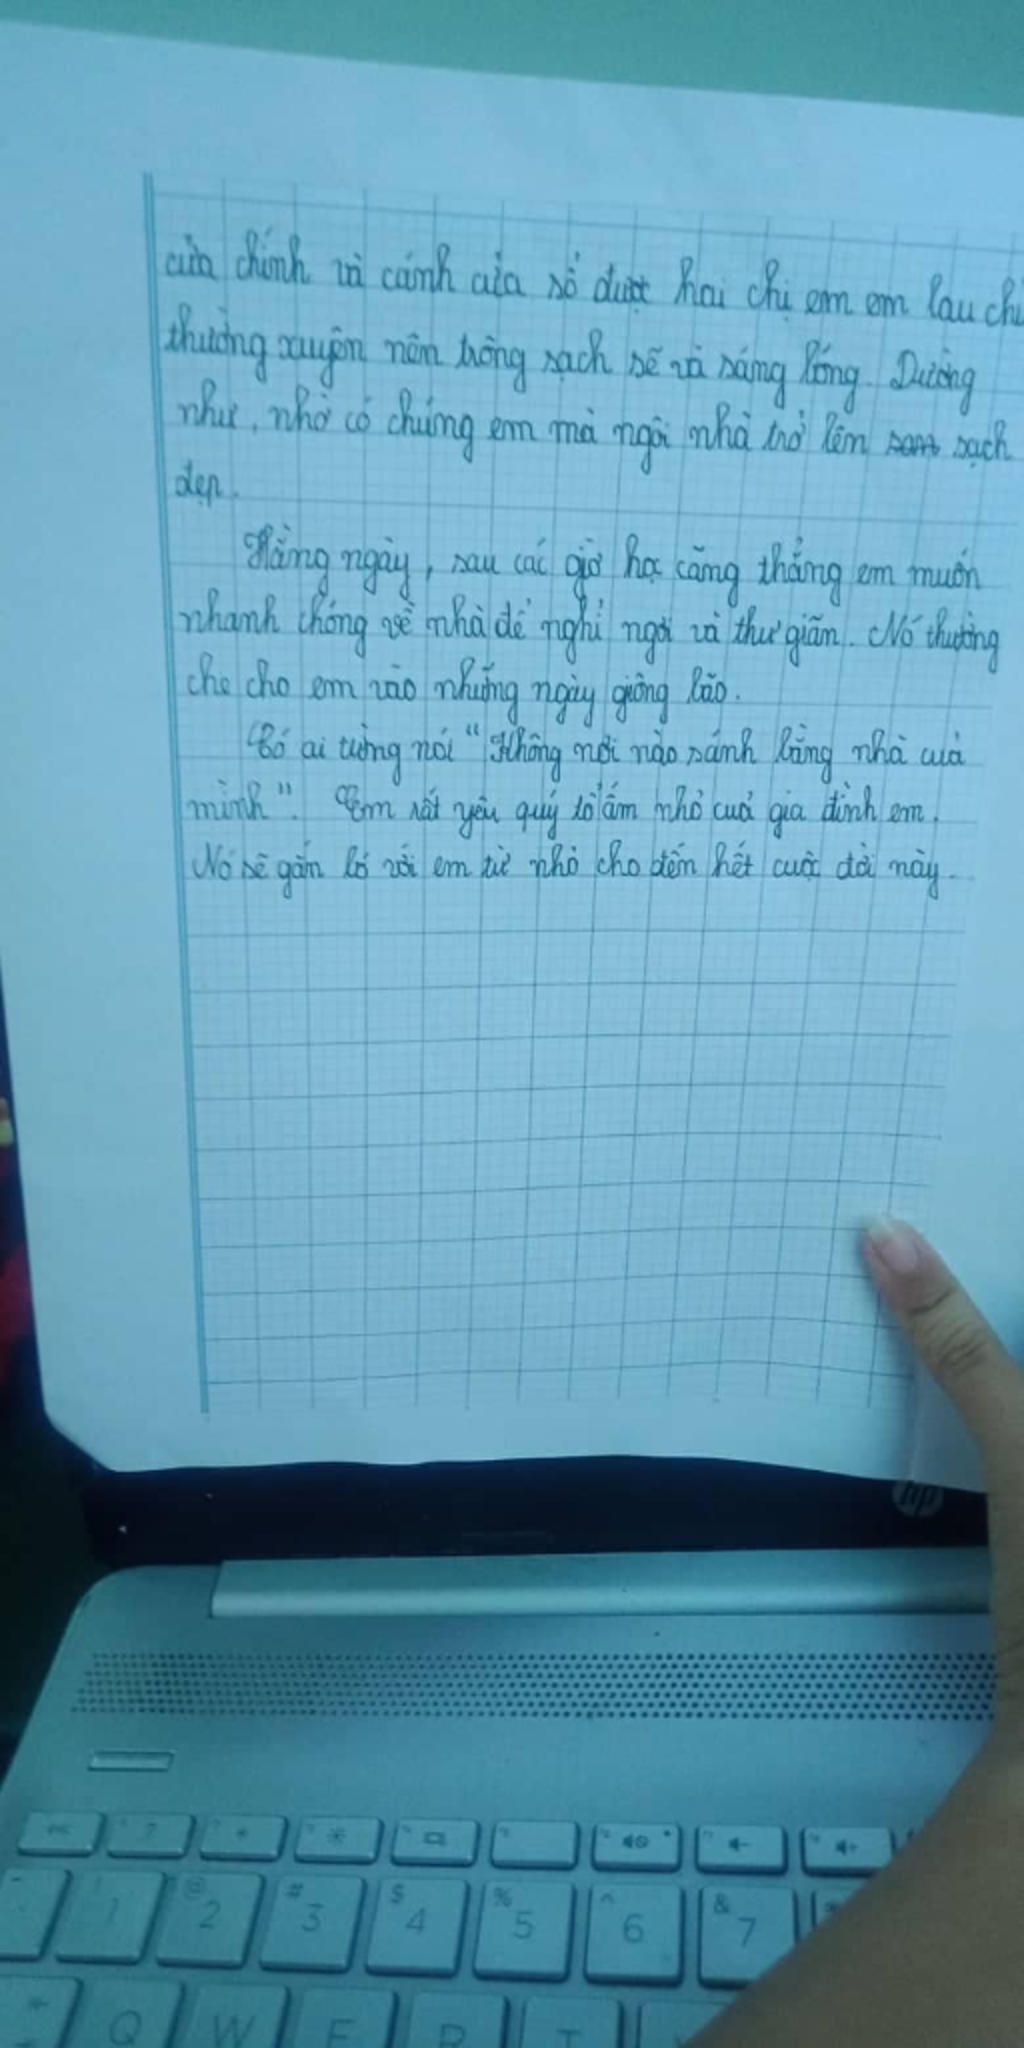 cửa chính và cánh cửa sổ được hai chị em em lau chù
thường xuyên nên trông sạch sẽ và sáng lóng. Dường
như, nhờ có chúng em mà ngôi nhà trở lên sạch
đẹp.
Hằng ngày, sau các giờ học căng thẳng em muốn
nhanh chóng về nhà để nghỉ ngơi và thư giãn. Nó thường
che cho em vào những ngày giông bão.
Có ai từng nói "Không nơi nào sánh bằng nhà cuả
mình". Em rất yêu quý tổ ấm nhỏ cuả gia đình em.
Nó sẽ gắn bó với em từ nhỏ cho đến hết cuộc đời này.
hp
? * 
# $ % ^ &
2 3 4 5 6 7
Q W E R T